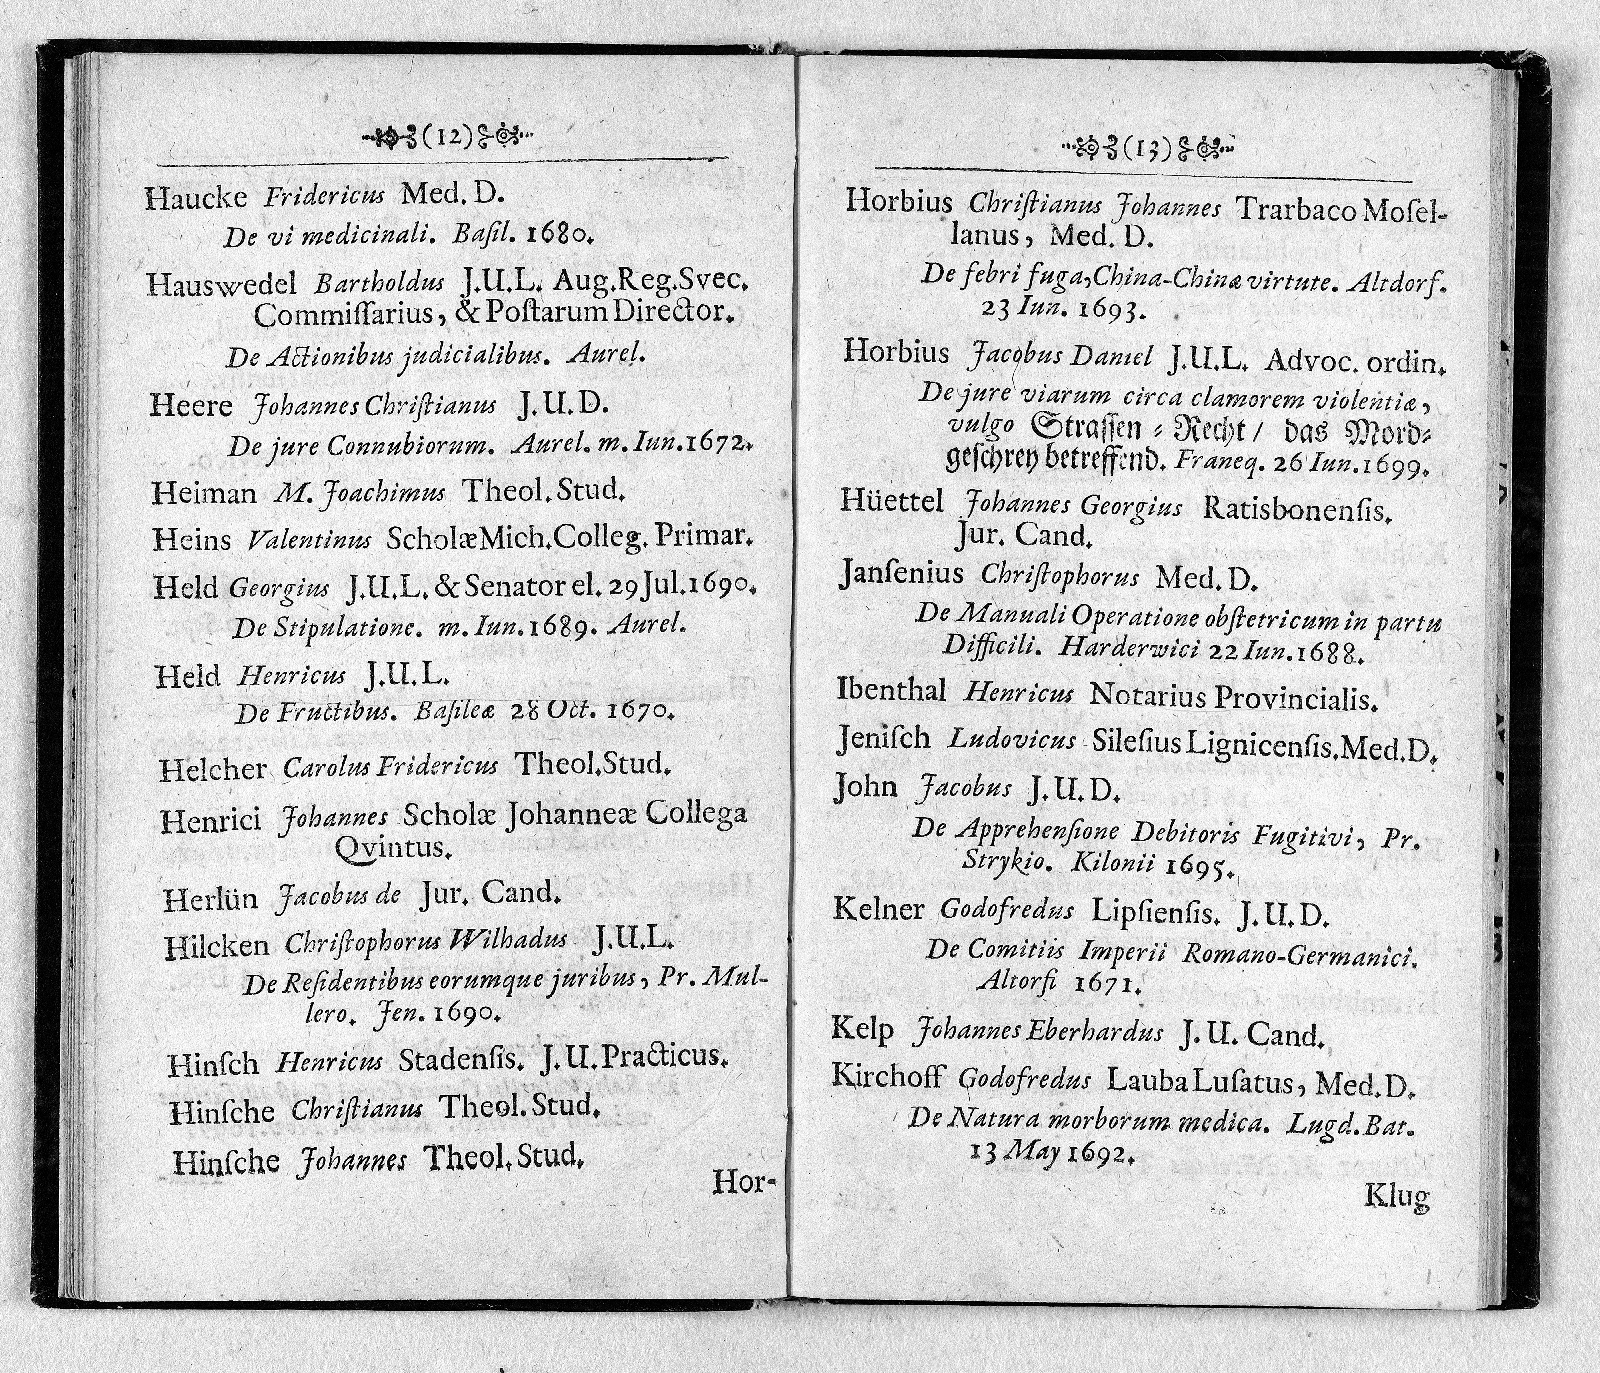 (12)
Haucke Fridericus Med. D.
De vi medicinali. Baſil. 1680.
Hauswedel Bartholdus J.U.L. Aug.Reg.Svec.
Commiſſarius, & Poſtarum Director.
De Actionibus judicialibus. Aurel.
Heere Johannes Chriſtianus J.U.D.
De jure Connubiorum. Aurel. m. Iun. 1672.
Heiman M. Joachimus Theol. Stud.
Heins Valentinus Scholæ Mich. Colleg. Primar.
Held Georgius J.U.L. & Senator el. 29 Jul. 1690.
De Stipulatione. m. Iun. 1689. Aurel.
Held Henricus J.U.L.
De Fructibus. Baſileæ 28 Oct. 1670.
Helcher Carolus Fridericus Theol. Stud.
Henrici Johannes Scholæ Johanneæ Collega
Qvintus.
Herlün Jacobus de Jur. Cand.
Hilcken Chriſtophorus Wilhadus J.U.L.
De Reſidentibus eorumque juribus, Pr. Mul-
lero. Jen. 1690.
Hinſch Henricus Stadenſis. J.U. Practicus.
Hinſche Chriſtianus Theol. Stud.
Hinſche Johannes Theol. Stud.
Hor-
(13)
Horbius Chriſtianus Johannes Trarbaco Moſel-
lanus, Med. D.
De febri fuga, China-Chinæ virtute. Altdorf.
23 Iun. 1693.
Horbius Jacobus Daniel J.U.L. Advoc. ordin.
De jure viarum circa clamorem violentiæ,
vulgo Straſſen⸗Recht/ das Mord⸗
geſchrey betreffend. Franeq. 26 Iun. 1699.
Hüettel Johannes Georgius Ratisbonenſis.
Jur. Cand.
Janſenius Chriſtophorus Med. D.
De Manuali Operatione obſtetricum in partu
Difficili. Harderwici 22 Iun. 1688.
Ibenthal Henricus Notarius Provincialis.
Jeniſch Ludovicus Sileſius Lignicenſis. Med. D.
John Jacobus J.U.D.
De Apprehenſione Debitoris Fugitivi, Pr.
Strykio. Kilonii 1695.
Kelner Godofredus Lipſienſis. J.U.D.
De Comitiis Imperii Romano-Germanici.
Altorfi 1671.
Kelp Johannes Eberhardus J.U. Cand.
Kirchoff Godofredus Lauba Luſatus, Med. D.
De Natura morborum medica. Lugd. Bat.
13 May 1692.
Klug